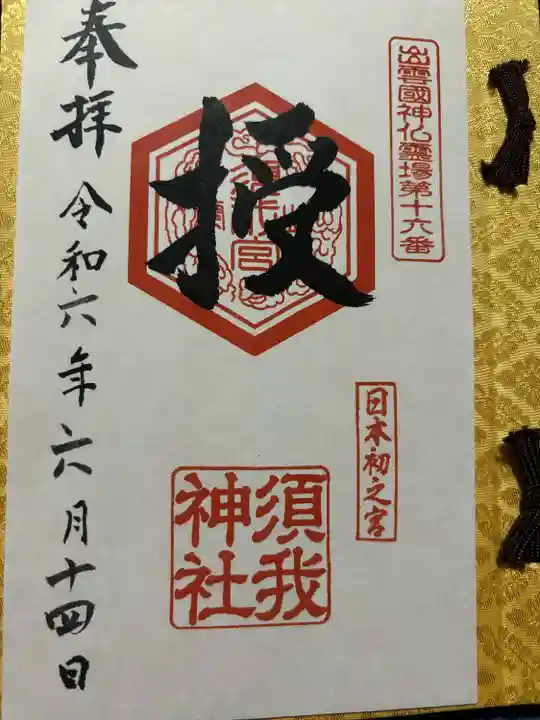 出雲國神仏霊場第十六番
日本初之宮
授
須我神社
奉拝 令和六年六月十四日